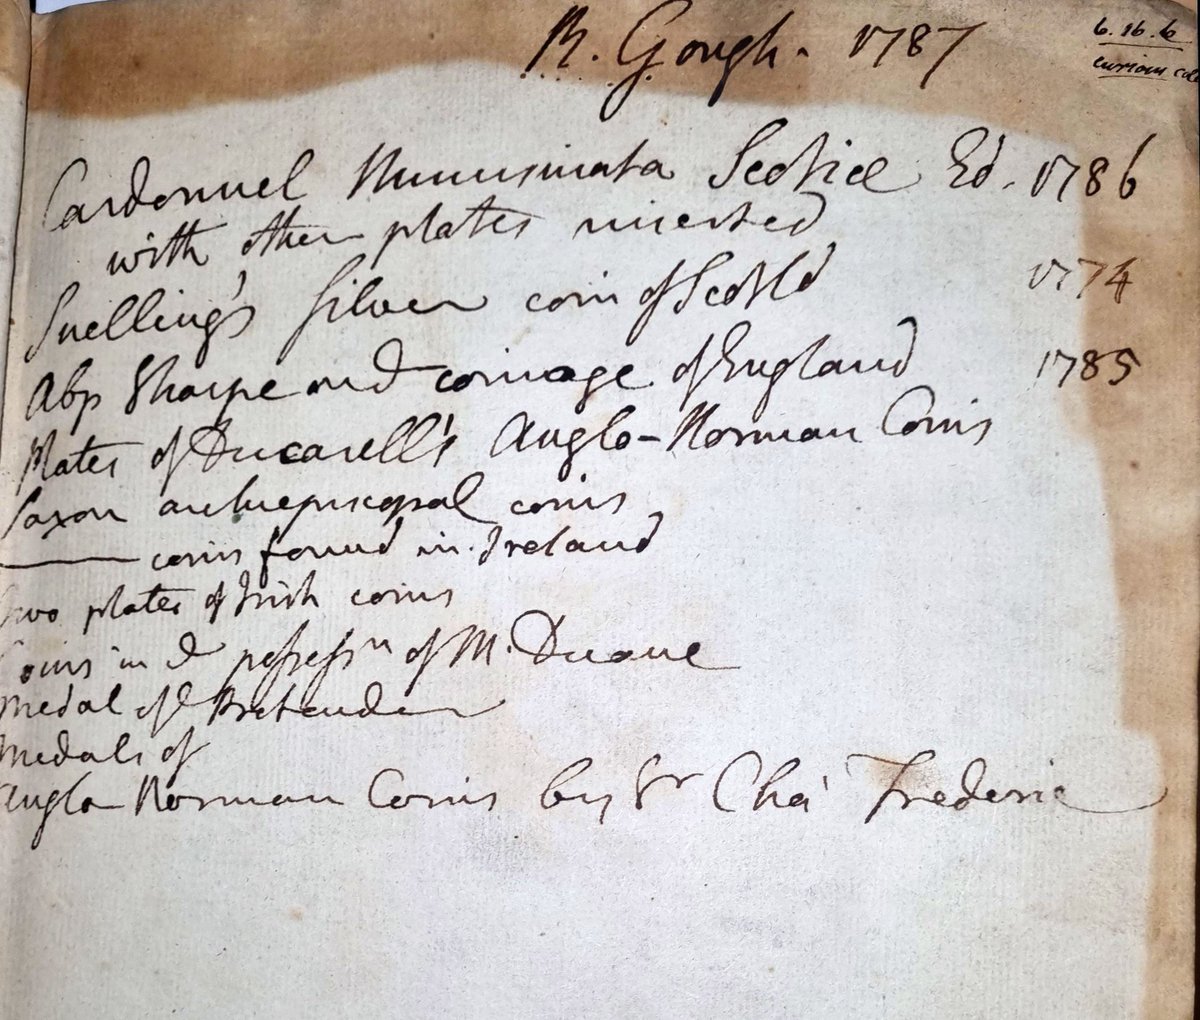 R. Gough. 1787
6.16.6
curious
Cardonnel Numismata Scotiæ Ed. 1786
with other plates inserted
Snelling's silver coin of Scotld 1774
Abp Sharpe on d coinage of England 1785
Plates of Ducarell's Anglo-Norman Coins
Saxon archiepiscopal coins
—— coins found in Ireland
Two plates of Irish coins
Coins in d possessn of M. Duane
Medal of d Pretender
Medals of
Anglo Norman Coins by Sr Cha Frederic